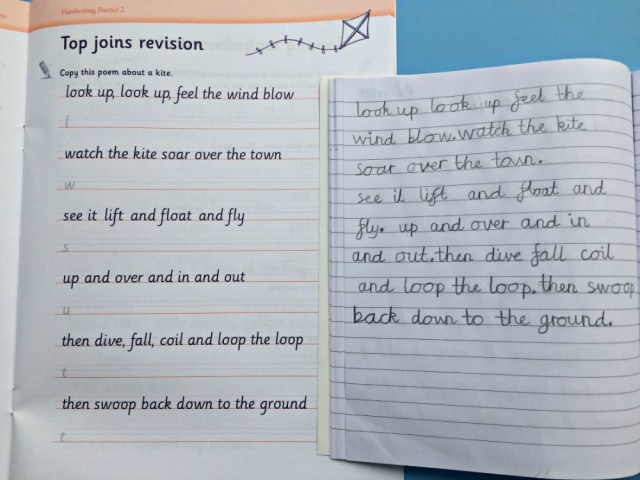 Handwriting Practice 2
Top joins revision
Copy this poem about a kite.
look up, look up, feel the wind blow
l
watch the kite soar over the town
w
see it lift and float and fly
s
up and over and in and out
u
then dive, fall, coil and loop the loop
t
then swoop back down to the ground
t
look up look up feel the
wind blow.watch the kite
soar over the town.
see it lift and float and
fly. up and over and in
and out.then dive fall coil
and loop the loop.then swoop
back down to the ground.